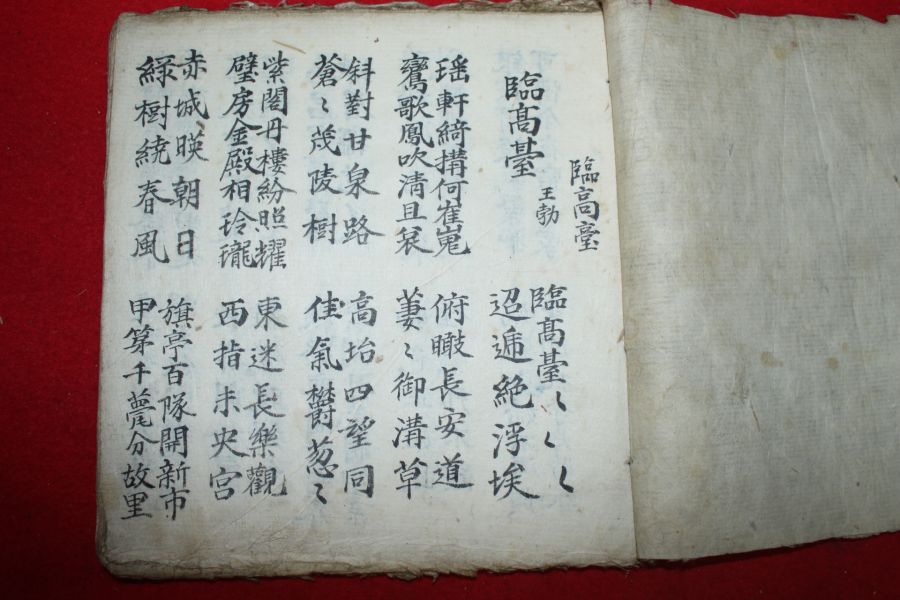 臨高臺
臨髙臺
王勃
臨髙臺〻〻〻
迢遞絶浮埃
瑶軒綺搆何崔嵬
鸞歌鳳吹淸且哀
俯瞰長安道
萋〻御溝草
斜對甘泉路
蒼〻茂陵樹
高坮四望同
佳氣欝葱〻
紫閣丹樓紛照耀
璧房金殿相玲瓏
東迷長樂觀
西指未央宮
赤城暎朝日
緑樹繞春風
旗亭百隊開新市
甲第千甍分故里